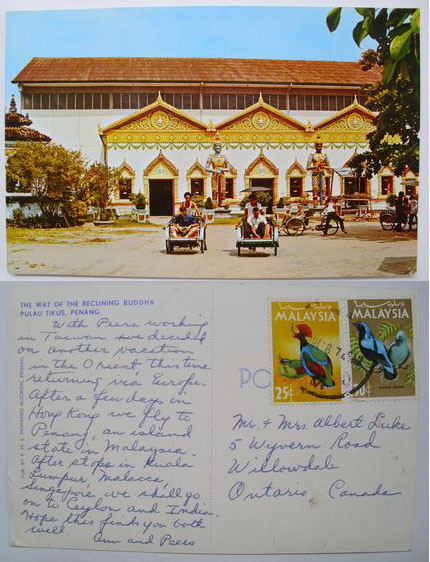 THE WAT OF THE RECLINING BUDDHA
PULAU TIKUS, PENANG.
With Peers working
in Taiwan we decided
on another vacation
in the Orient this time
returning via Europe.
After a few days in
Hong Kong we fly to
Penang, an island
state in Malaysia.
After stops in Kuala
Lumpur, Malacca,
Singapore, we shall go
on to Ceylon and India.
Hope this finds you both
well.
Ann and Peers
PO
MALAYSIA
25¢
MALAYSIA
Mr + Mrs Albert Luke
5 Wyvern Road
Willowdale
Ontario, Canada